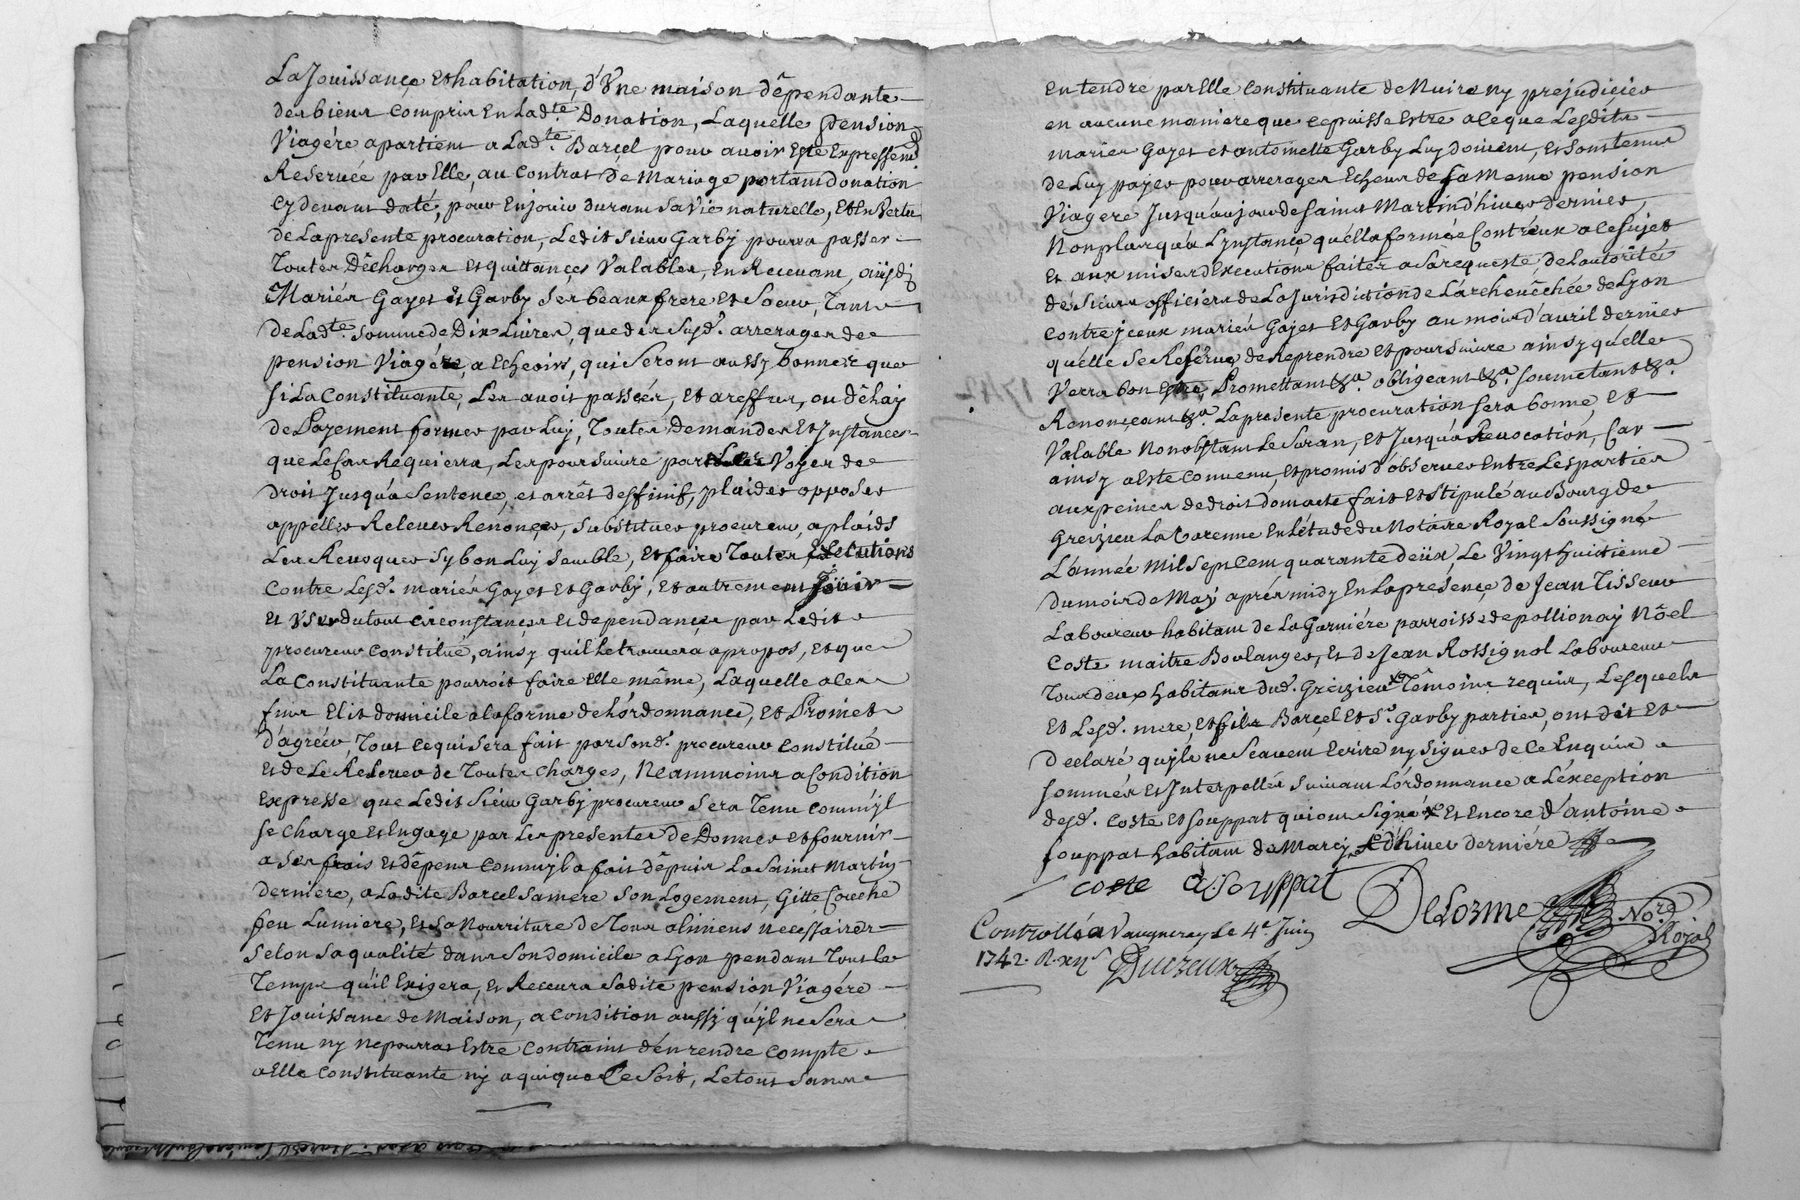 La Jouissance et habitation, d'Vne maison dêpendante
des biens compris En Lad.te Donation, Laquelle pension
Viagére apartient a Lad.te Barcel pour auoir Esté Expressem.t
Reseruée par Elle, au Contrat de Mariage portant donation
cy deuant daté, pour En jouir durant sa Vie naturelle, Et En Vertu
de La presente procuration, Ledit Sieur Garby pourra passer
Toutes Dêcharges et quittances Valables, En Receuant, ausdj
Mariés Gayet et Garby Ses beaux frere et Soeur, Tant
de Lad.te Somme de Dix Liures, que des Susd. arrerages de
pension Viagére, a Echeoirs, qui Seront aussy bonnes que
si La Constituante, Les auoit passées, Et a reffus, ou dêlaij
de Payement former par Luj, Toutes Demandes Et Instances
que Le Cas Requierra, Les poursuiure par Voyes de
droit Jusqu'a Sentence, et arrêt deffinif, plaider opposer
appeller Releuer Renonçer, Substituer procureur, a plaids
Les Reuoquer Sy bon Luy Semble, Et faire Toutes Exécutions
Contre Lesd. mariés Gayet Et Garby, Et autrement Jouir
Et Vser du tout circonstances Et dependances par Ledit
procureur Constitué, ainsy quil Le trouuera apropos, Et que
La Constituante pourroit faire Elle même, Laquelle a ces
fins Elit domicile a la forme de Lórdonnance, Et Promet
d'agréér, Tout ce qui Sera fait par Sond. procureur Constitué
Et de Le Releuer de Toutes Charges, Neanmoins a Condition
Expresse que Ledit Sieur Garby procureur Sera Tenu Comm'jl
Se Charge et Engage par Les presentes de Donner et fournir
a Ses frais et dêpens Comm'jl a fait dêpuis La Saint Martin
derniére, a Ladite Barcel Sa mere Son Logement, Gitte Couche
feu Lumiere, Et Sa Nourriture de Tous alimens necessaires
Selon Sa qualité dans Son domicile a Lyon pendant Tout le
Temps qu'il Exigera, et Receura Sadite pension Viagére
Et Jouissance de Maison, a Condition aussy qu'jl ne Sera
Tenu ny ne pourra Estre Contraint d'én rendre Compte
a Elle Constituante ny a qui que Ce Soit, Le tout Sans
Entendre par Elle Constituante de Nuire ny prejudicier
en aucune maniere que ce puisse Estre a Ce que Lesdits
mariés Gayet et antoinette Garby Luy doiuent, et Sont tenus
de Luy payer pour arrerages Echeus de Sa Meme pension
Viagere Jusqu'au jour de Saint Martin d'hiuer dernier,
Non plus qu'a L'jnstance qu'élle a formée Contr'eux a Ce Sujet
Et aux mises d'Executions faites a Sa requeste, de L'autorité
des Sieurs officiers de La Jurisdiction de L'archeuêchée de Lyon
Contre jceux mariés Gayet Et Garby au mois d'auril dernier
qu'élle Se Reserue de Reprendre et poursuiure ainsy qu'élle
Verra bon Estre, Promettant &.a obligeant &.a Soumetant &.a
Renonçeant &.a La presente procuration Sera bonne, Et
Valable Nonobstant Le Suran, Et Jusqu'a Reuocation, Car
ainsy a Este Conuenu, Et promis d'obseruer Entre Les parties
aux peines de droit dont acte fait Et Stipulé au Bourg de
Greizieu La Varenne En L'étude du Notaire Royal Soussigné
L'année Mil Sept Cent quarante deüx, Le Vingt huitieme
du mois de May aprés midy En La presence de Jean Tisseur
Laboureur habitant de La Garniére parroisse de pollionay Nöel
Coste maitre Boulanger, Et de Jean Rossignol Laboureur
Tous deux habitans dud. Greizieu Têmoins requis, Lesquels
Et Lesd. mere, et fils Barçel Et S.r Garby parties, ont dit Et
Declaré qu'jls ne Sçauent Ecrire ny Signer de Ce Enquis
Sommés Et Interpellés Suiuant L'ordonnance a L'éxception
desd. Coste et Souppat qui ont Signé Et Encore d'antoine
Souppat habitant de Marcy d'hiuer derniére
coste A. Souppat
DeLorme No.re Royal
Controllé a Vaugneray Le 4.e Juin
1742. R. xii s.
Ducreux